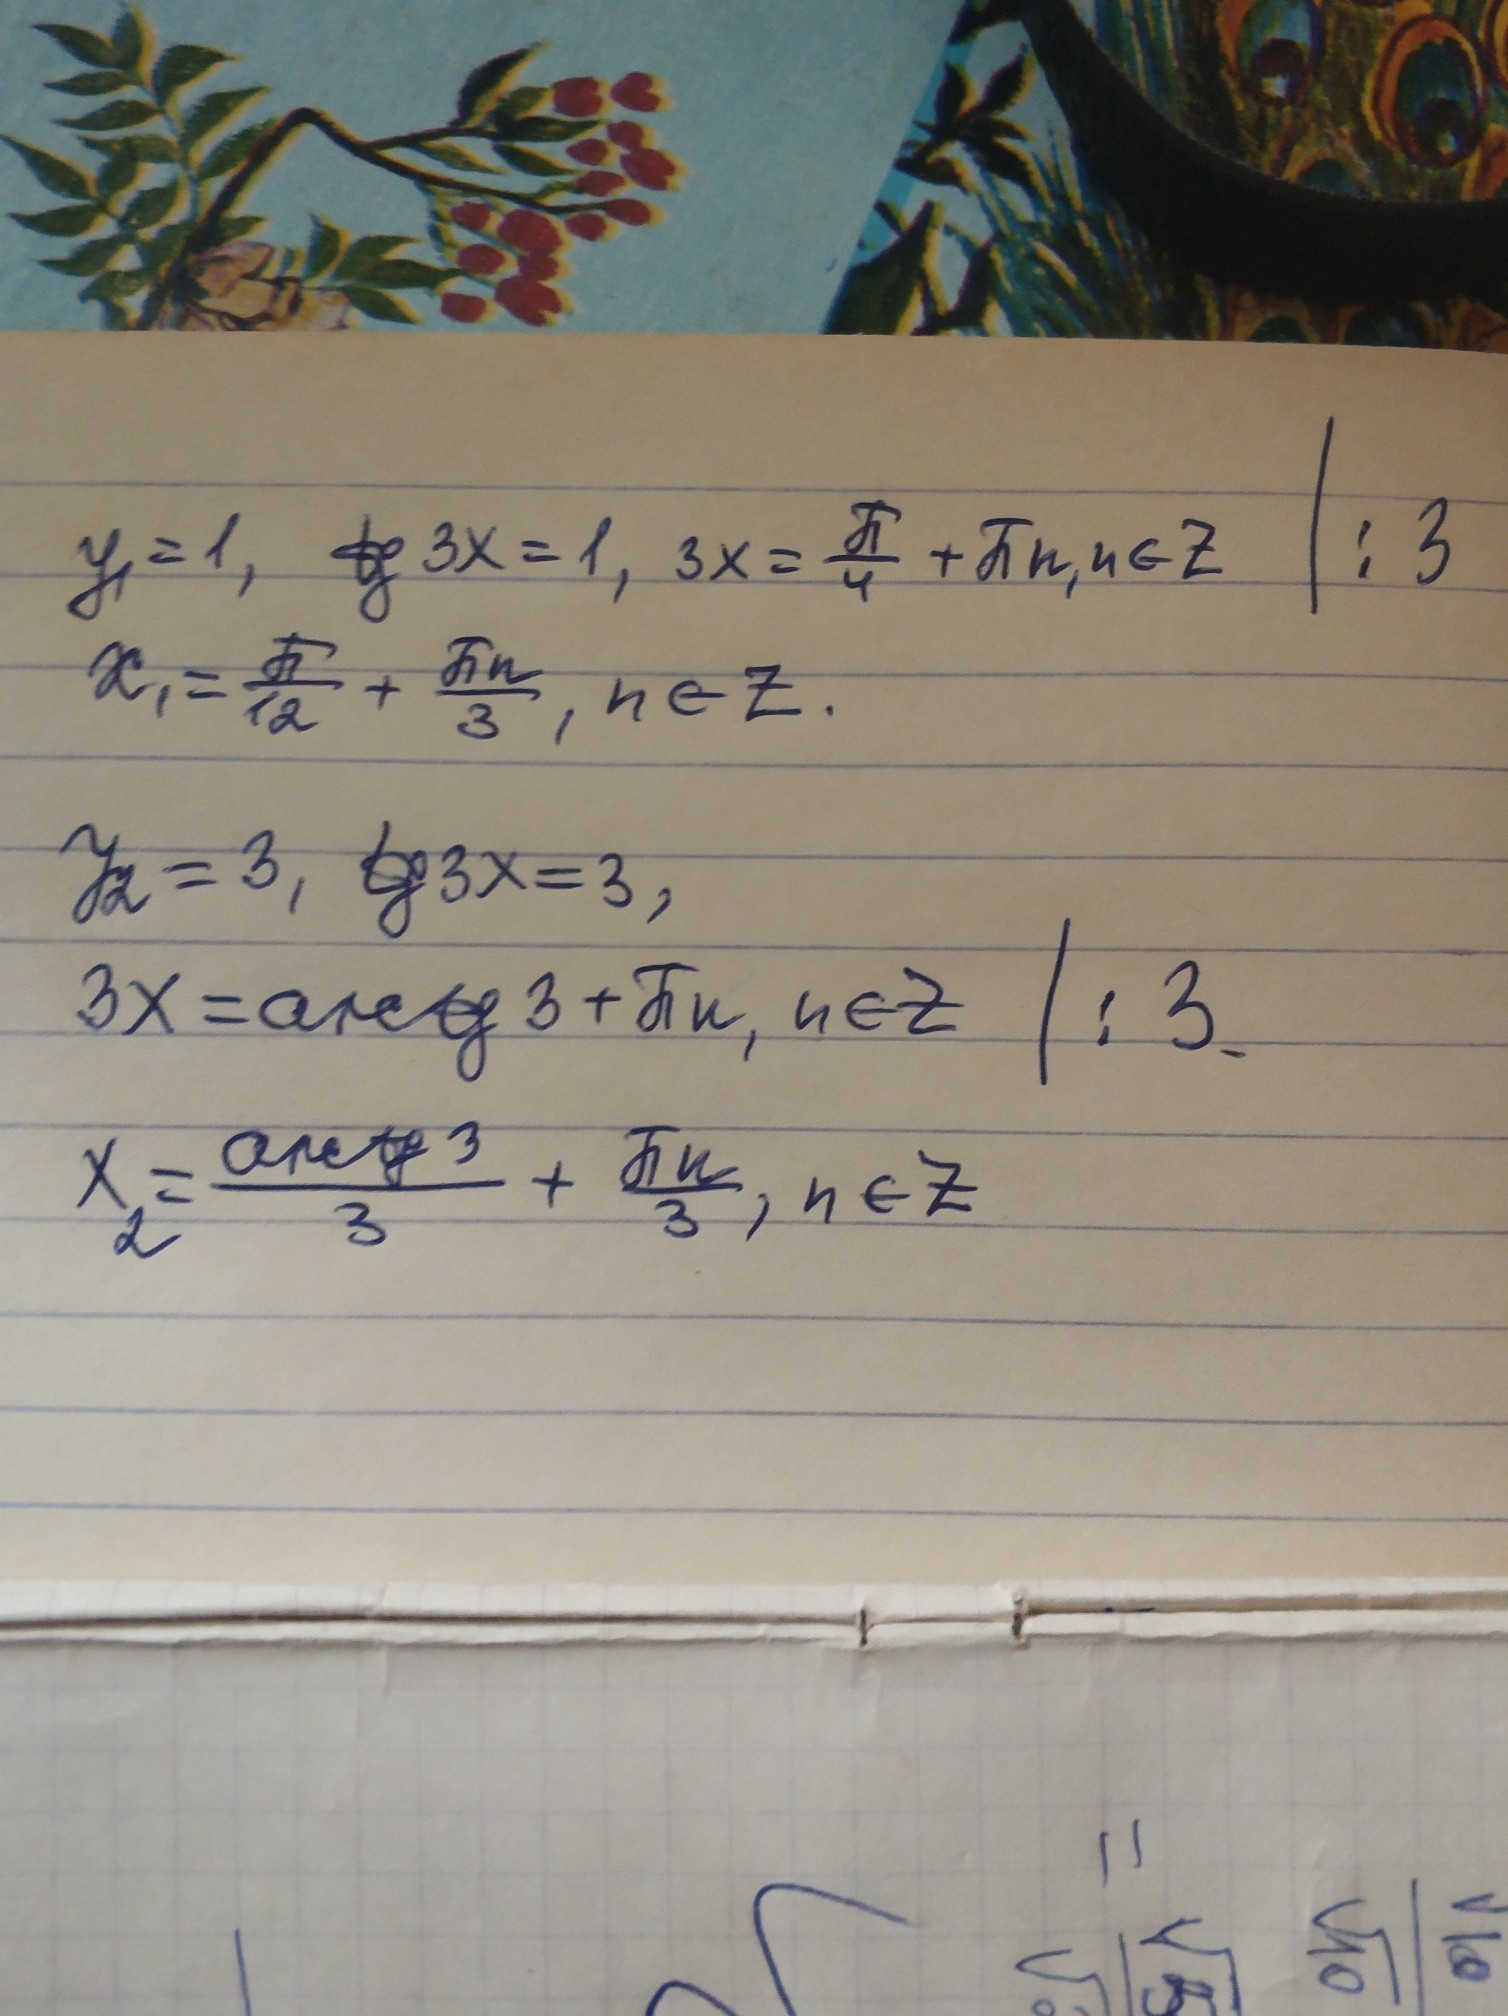 y₁ = 1, tg 3x = 1, 3x = π/4 + πn, n ∈ Z | : 3
x₁ = π/12 + πn/3, n ∈ Z.
y₂ = 3, tg 3x = 3,
3x = arctg 3 + πn, n ∈ Z | : 3
x₂ = arctg 3/3 + πn/3, n ∈ Z
=
√10
√10